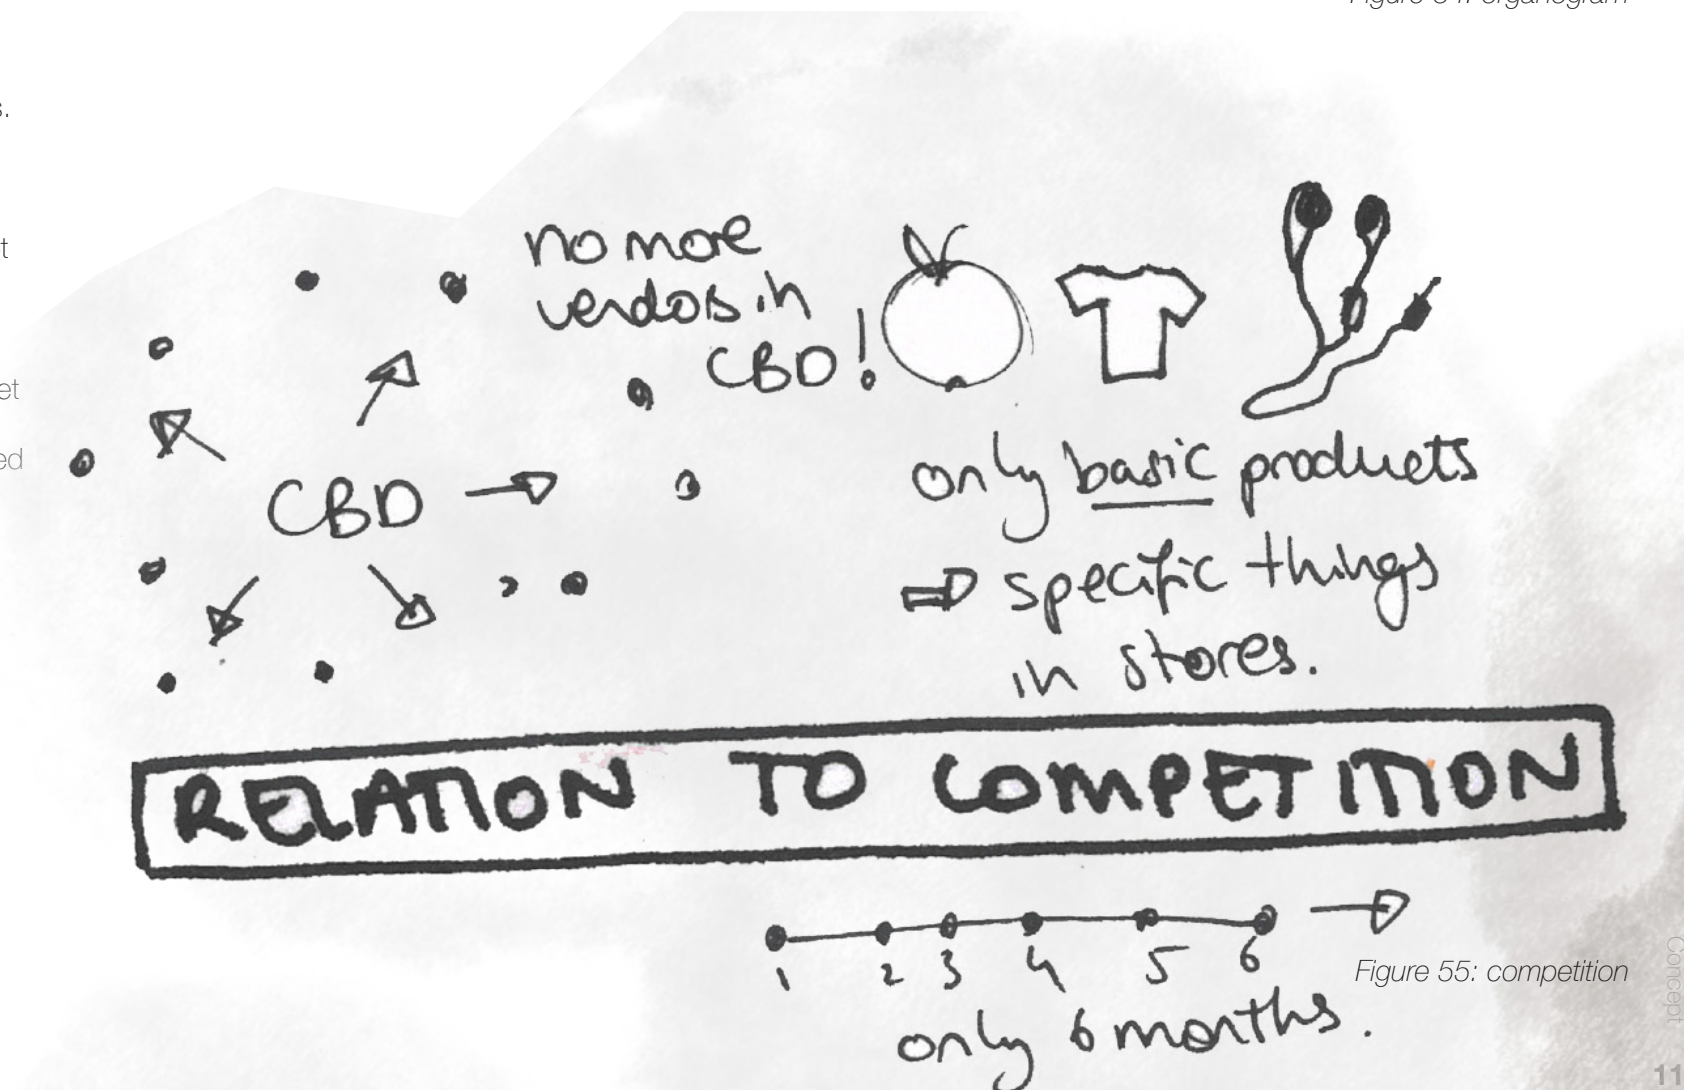 s.
t
et
ed
no more
verdors in
CBD!
CBD
only basic products
specific things
in stores.
RELATION TO COMPETITION
1 2 3 4 5 6
only 6 months.
Figure 55: competition
Concept
11